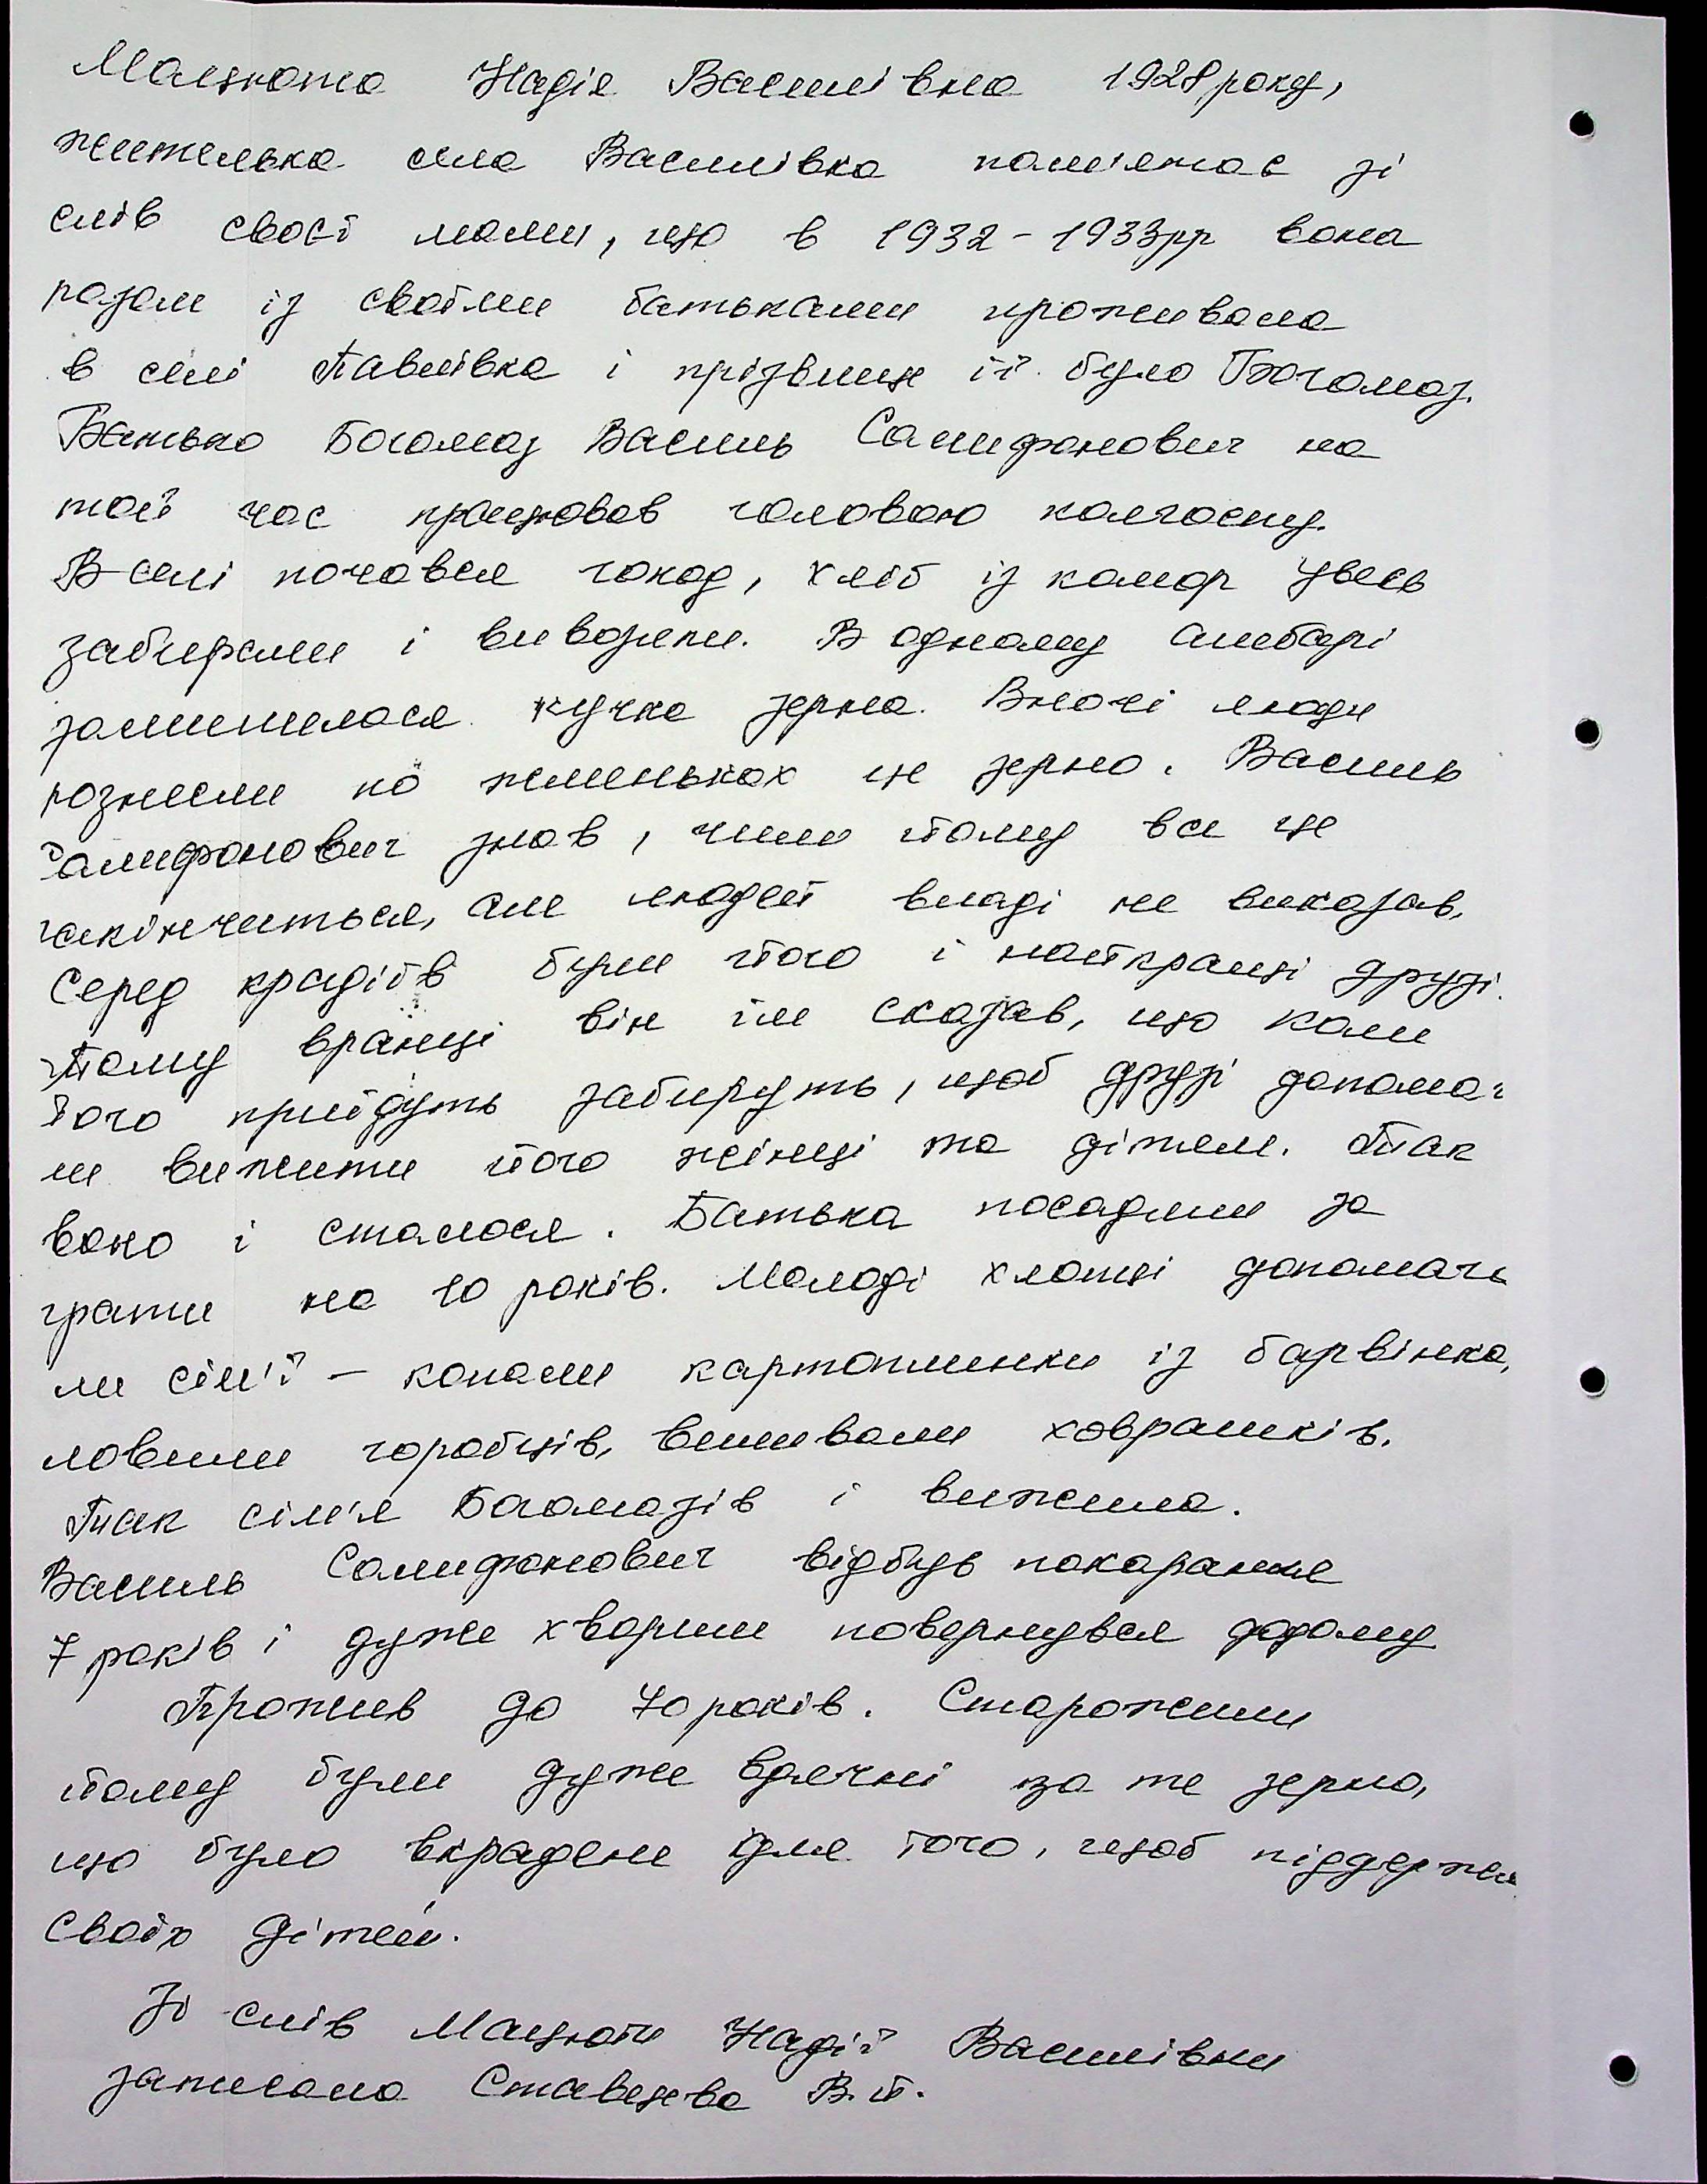 Мацюта Надія Василівна 1928 року,
жителька села Василівка пам'ятає зі
слів своєї мами, що в 1932 - 1933рр вона
разом із своїми батьками проживала
в селі Павлівка і прізвище її було Богомаз.
Батько Богомаз Василь Самифонович на
той час працював головою колгоспу.
В селі почався голод, хліб із комор увесь
забирали і вивозили. В одному амбарі
залишилася кучка зерна. Вночі люди
рознесли по жменьках це зерно. Василь
Самифонович знав, чим йому все це
закінчиться, але людей владі не виказав.
Серед крадіїв були його і найкращі друзі.
Тому вранці він їм сказав, що коли
його прийдуть заберуть, щоб друзі допомог
ли вижити його жінці та дітям. Так
воно і сталося. Батька посадили за
грати на 10 років. Молоді хлопці допомага
ли сім'ї - копали картоплинки із барвінка,
ловили горобців, виливали ховрашків.
Так сім'я Богомазів і вижила.
Василь Самифонович відбув покарання
7 років і дуже хворим повернувся додому
Прожив до 70 років. Старожили
йому були дуже вдячні за те зерно,
що було вкрадене для того, щоб піддержа
своїх дітей.
Зі слів Мацюти Надії Василівни
записала Ставцева В.П.